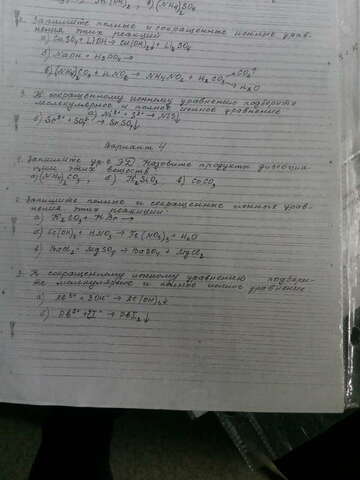 б) (NH₄)₂SO₄
2. Запишите полные и сокращенные ионные урав-
нения этих реакций
а) CuSO₄ + LiOH → Cu(OH)₂↓ + Li₂SO₄
б) NaOH + H₃PO₄ →
в) (NH₄)₂CO₃ + HNO₃ → NH₄NO₃ + H₂CO₃ CO₂↑
H₂O
3. К сокращенному ионному уравнению подберите
молекулярное и полное ионное уравнение
а) Ni²⁺ + S²⁻ → NiS↓
б) Sr²⁺ + SO₄²⁻ → SrSO₄↓
Вариант 4
1. Запишите ур-е ЭД. Назовите продукты диссоциа-
ции этих веществ
а) (NH₄)₂CO₃, б) H₂SiO₃ в) CaCO₃
2. Запишите полные и сокращенные ионные урав-
нения этих реакций
а) K₂CO₃ + HBr →
б) Fe(OH)₃ + HNO₃ → Fe(NO₃)₃ + H₂O
в) BaCl₂ + MgSO₄ → BaSO₄ + MgCl₂
3. К сокращенному ионному уравнению подбери-
те молекулярное и полное ионное уравнение
а) Al³⁺ + 3OH⁻ → Al(OH)₃↓
б) Pb²⁺ + 2I⁻ → PbI₂↓